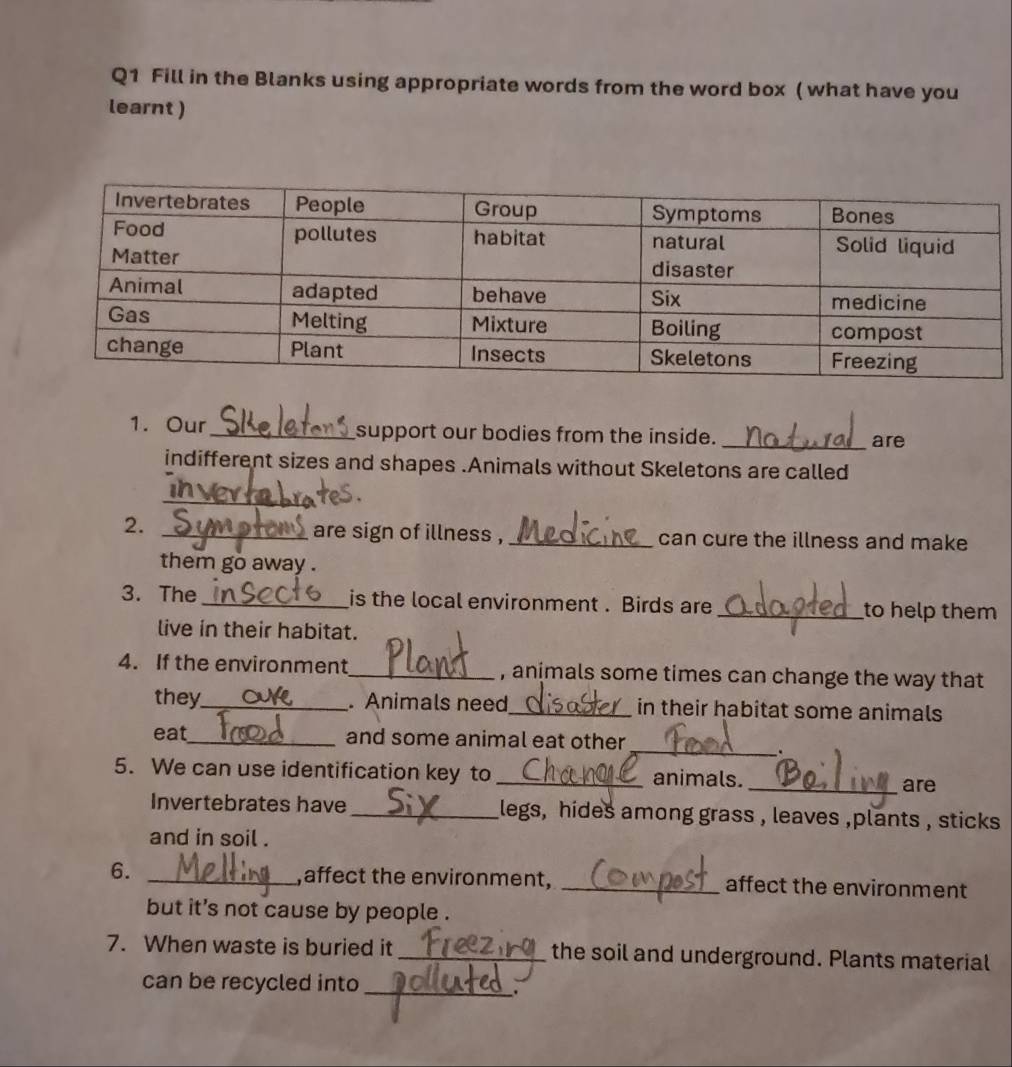 Q1 Fill in the Blanks using appropriate words from the word box ( what have you
learnt )
Invertebrates People Group Symptoms Bones
Food pollutes habitat natural Solid liquid
Matter disaster
Animal adapted behave Six medicine
Gas Melting Mixture Boiling compost
change Plant Insects Skeletons Freezing
1. Our Skeletons support our bodies from the inside. natural are
indifferent sizes and shapes .Animals without Skeletons are called
invertebrates.
2. Symptoms are sign of illness , Medicine can cure the illness and make
them go away .
3. The insects is the local environment . Birds are adapted to help them
live in their habitat.
4. If the environment Plant , animals some times can change the way that
they are . Animals need disaster in their habitat some animals
eat Food and some animal eat other Food .
5. We can use identification key to Change animals. Boiling are
Invertebrates have Six legs, hides among grass , leaves ,plants , sticks
and in soil .
6. Melting ,affect the environment, Compost affect the environment
but it's not cause by people .
7. When waste is buried it Freezing the soil and underground. Plants material
can be recycled into polluted .